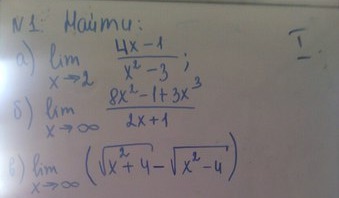 N1. Найти:
I.
а) lim x→2 (4x-1)/(x²-3);
б) lim x→∞ (8x²-1+3x³)/(2x+1)
в) lim x→∞ (√(x²+4) - √(x²-4))